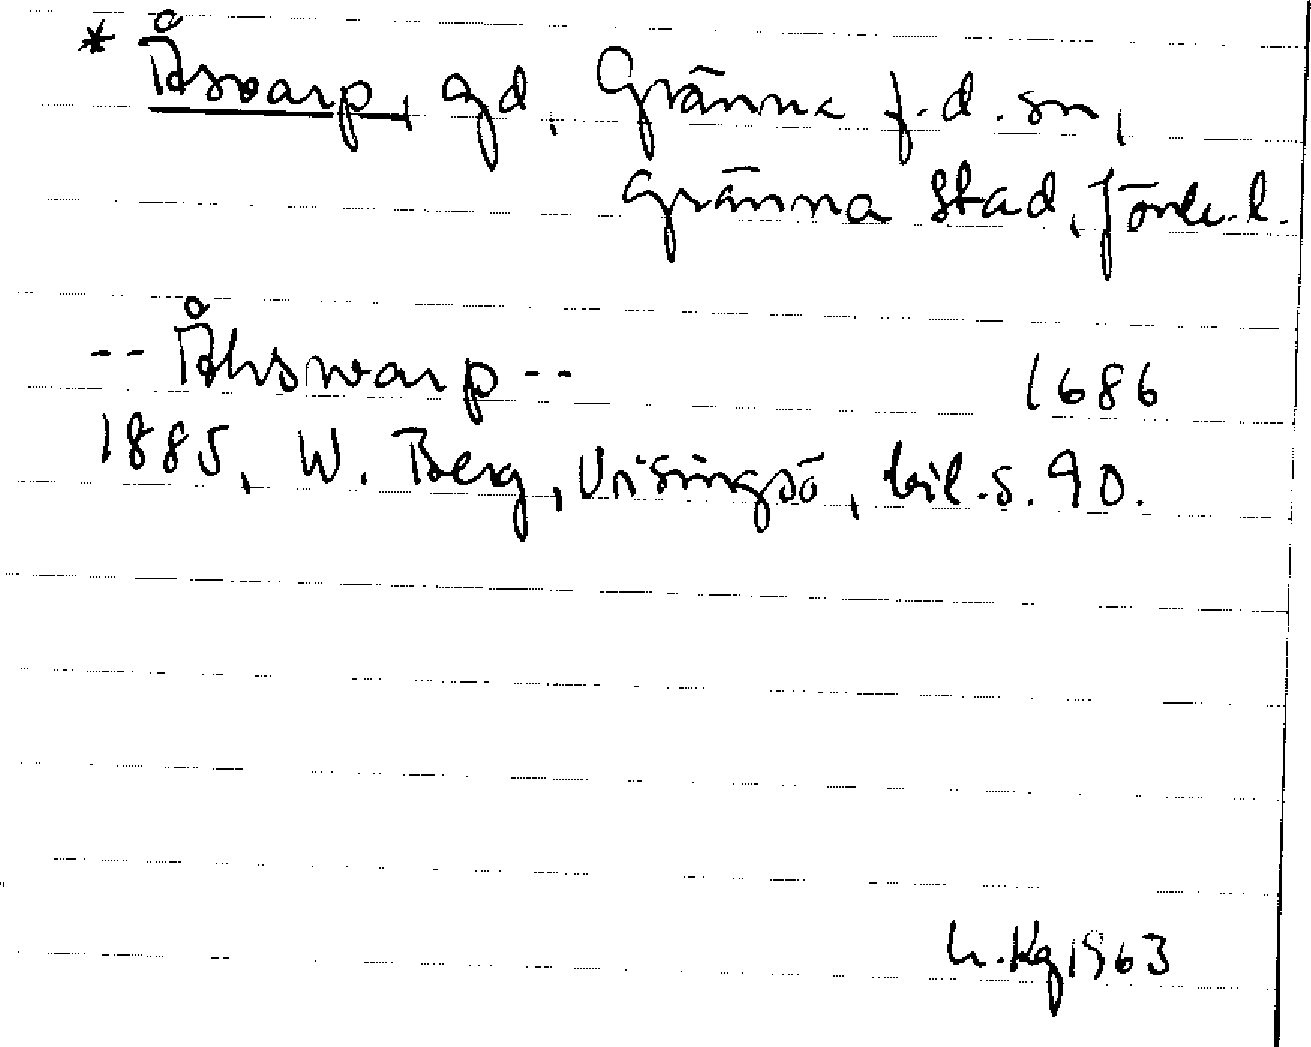 * Åsvarp, gd, Gränna f.d. sn,
Gränna stad, Jönk. l.
-- Åhswarp -- 1686
1885, W. Berg, Visingsö, bil. s. 90.
h. Kg 1963